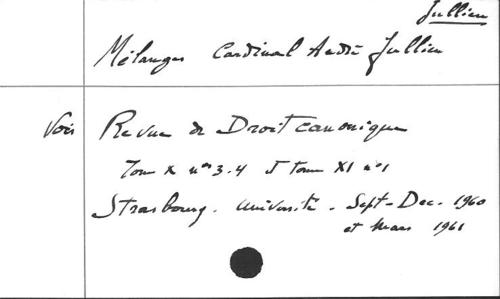 Jullien
Mélanges Cardinal André Jullien
Voir Revue de Droit canonique
Tome X nos 3-4 et tome XI no 1
Strasbourg. Université. Sept-Dec. 1960
et Mars 1961